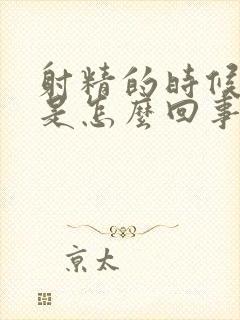 射精的時候
是怎麼回事
京太